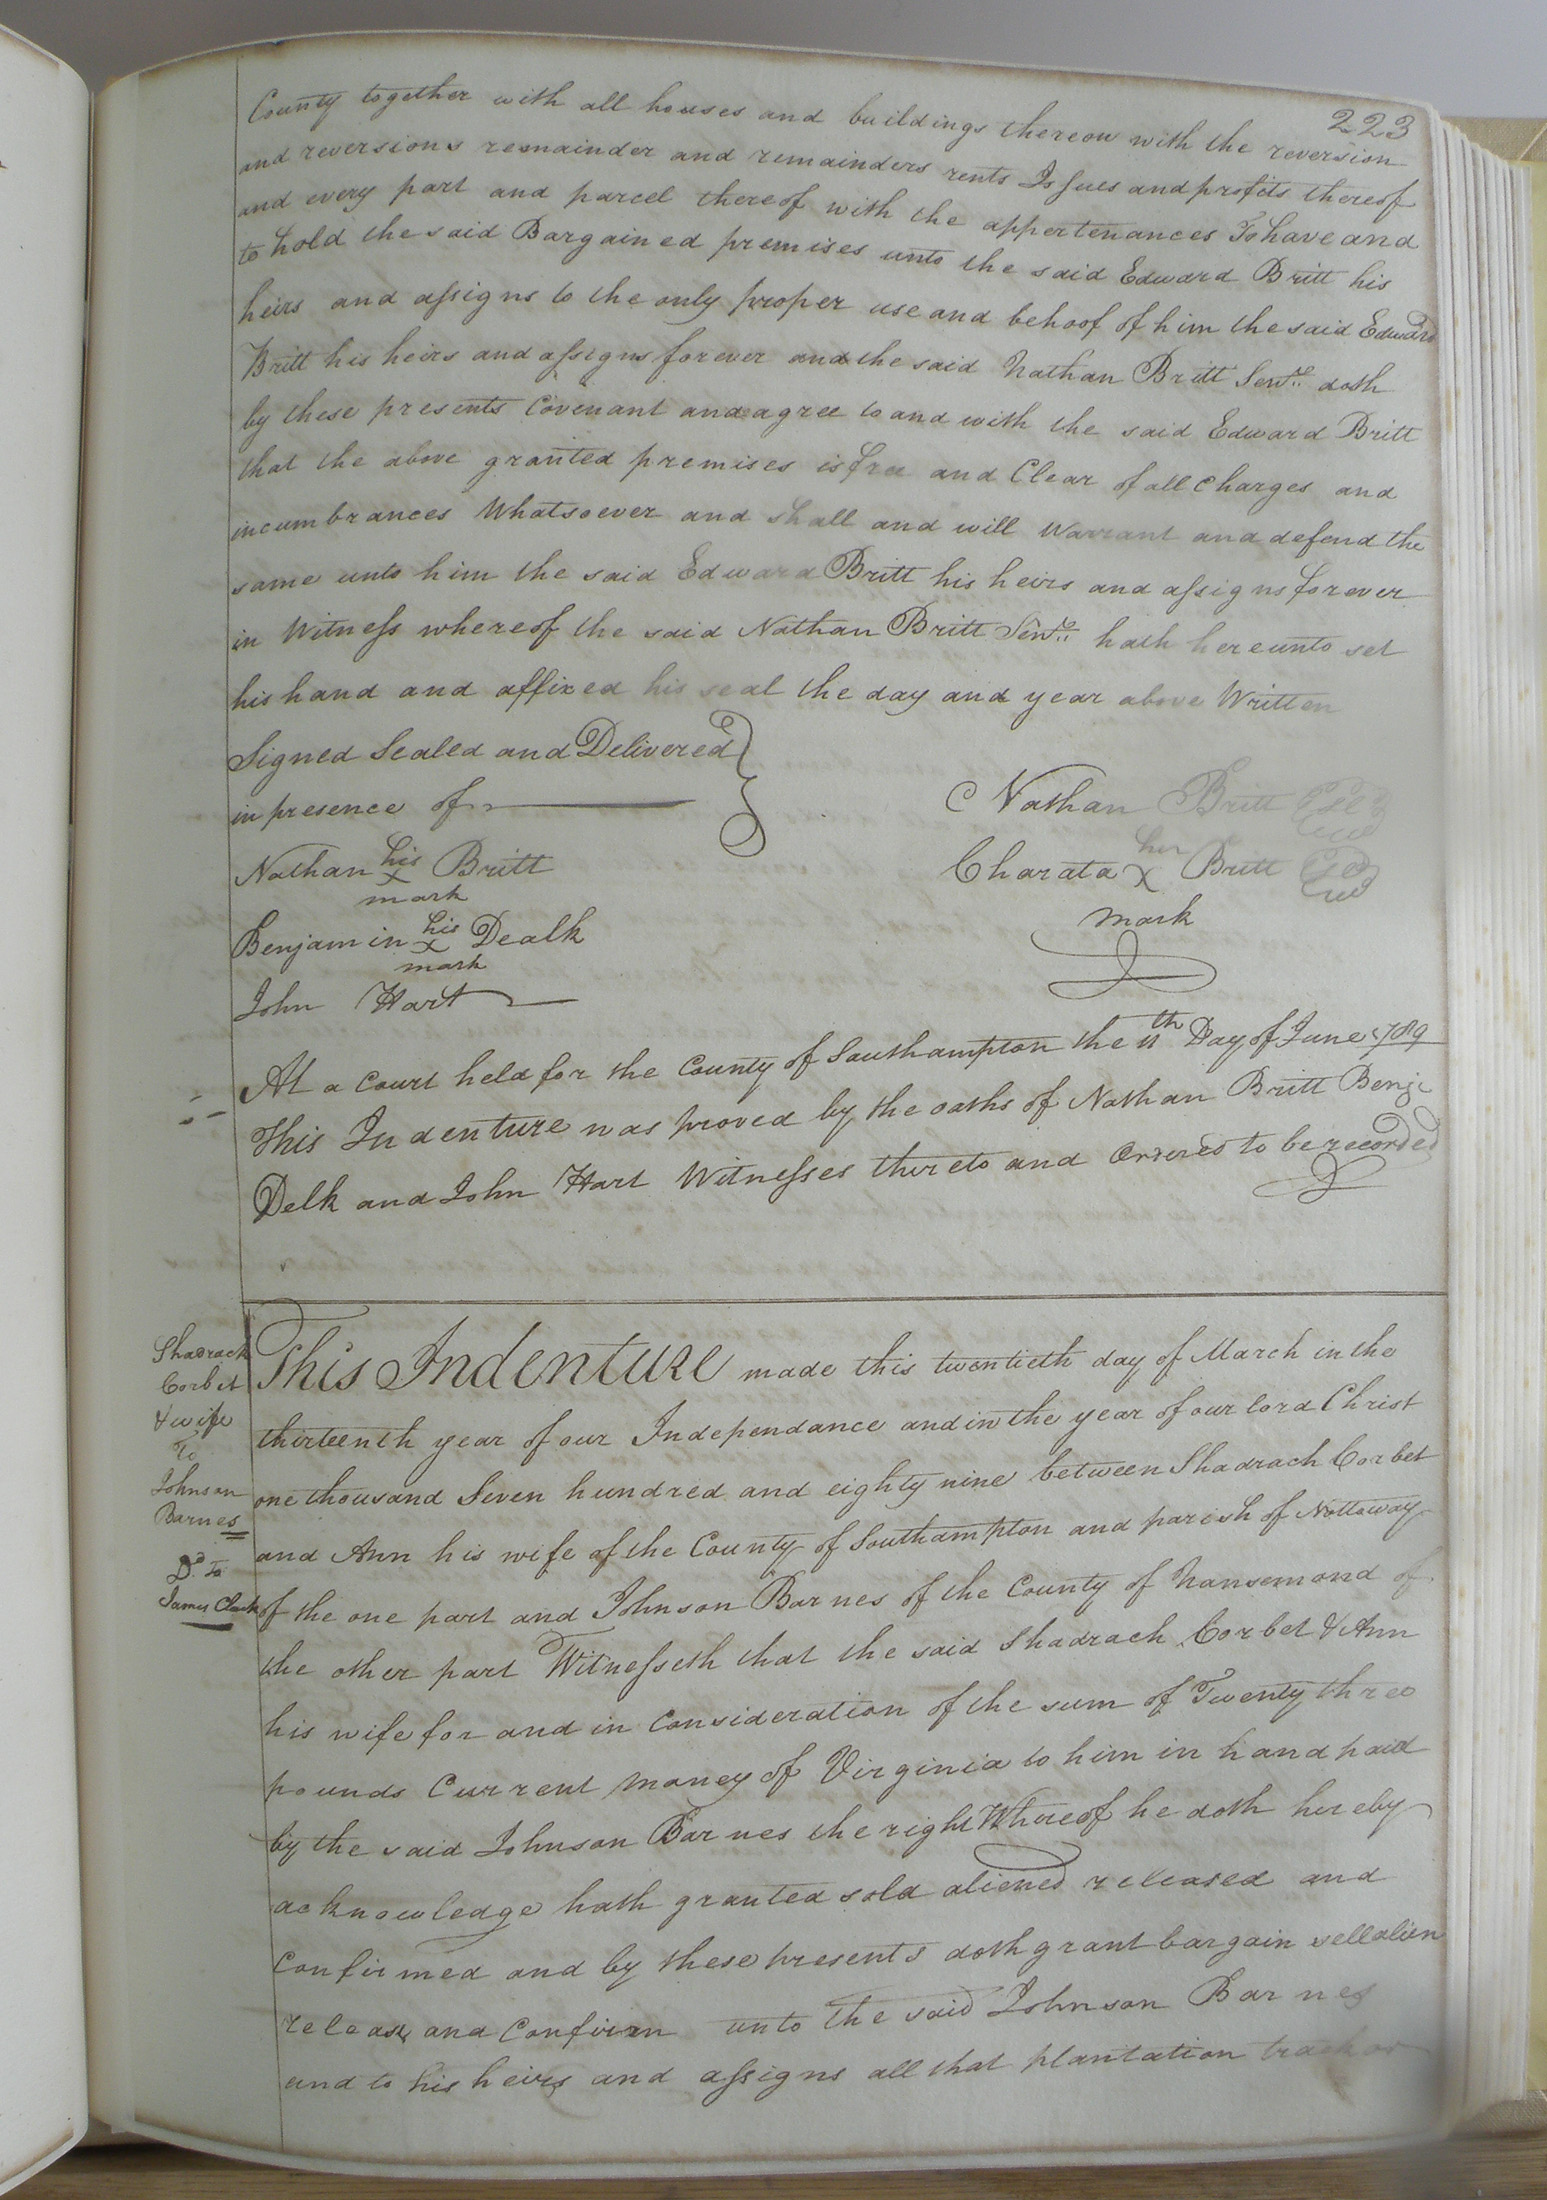 223
County together with all houses and buildings thereon with the reversion
and reversions remainder and remainders rents Issues and profits thereof
and every part and parcel thereof with the appertenances To have and
to hold the said Bargained premises unto the said Edward Britt his
heirs and assigns to the only proper use and behoof of him the said Edward
Britt his heirs and assigns forever and the said Nathan Britt Senr. doth
by these presents Covenant and agree to and with the said Edward Britt
that the above granted premises is free and Clear of all Charges and
incumbrances Whatsoever and shall and will Warrant and defend the
same unto him the said Edward Britt his heirs and assigns forever
in Witness whereof the said Nathan Britt Senr. hath hereunto set
his hand and affixed his seal the day and year above Written
Signed Sealed and Delivered
in presence of
Nathan Britt
Nathan his x mark Britt
Charata her x mark Britt
Benjamin his x mark Dealk
John Hart
At a Court held for the County of Southampton the 11th Day of June 1789
This Indenture was proved by the oaths of Nathan Britt Benj
Delk and John Hart Witnesses thereto and Ordered to be recorded
Shadrack
Corbet
& wife
To
Johnson
Barnes
Do. To
James Clark
This Indenture made this twentieth day of March in the
thirteenth year of our Independance and in the year of our lord Christ
one thousand Seven hundred and eighty nine between Shadrach Corbet
and Ann his wife of the County of Southampton and parish of Nottoway
of the one part and Johnson Barnes of the County of Nansemond of
the other part Witnesseth that the said Shadrach Corbet & Ann
his wife for and in Consideration of the sum of Twenty three
pounds Current money of Virginia to him in hand paid
by the said Johnson Barnes the right Whereof he doth hereby
acknowledge hath granted sold aliened released and
Confirmed and by these presents doth grant bargain sell alien
release and Confirm unto the said Johnson Barnes
and to his heirs and assigns all that plantation track or